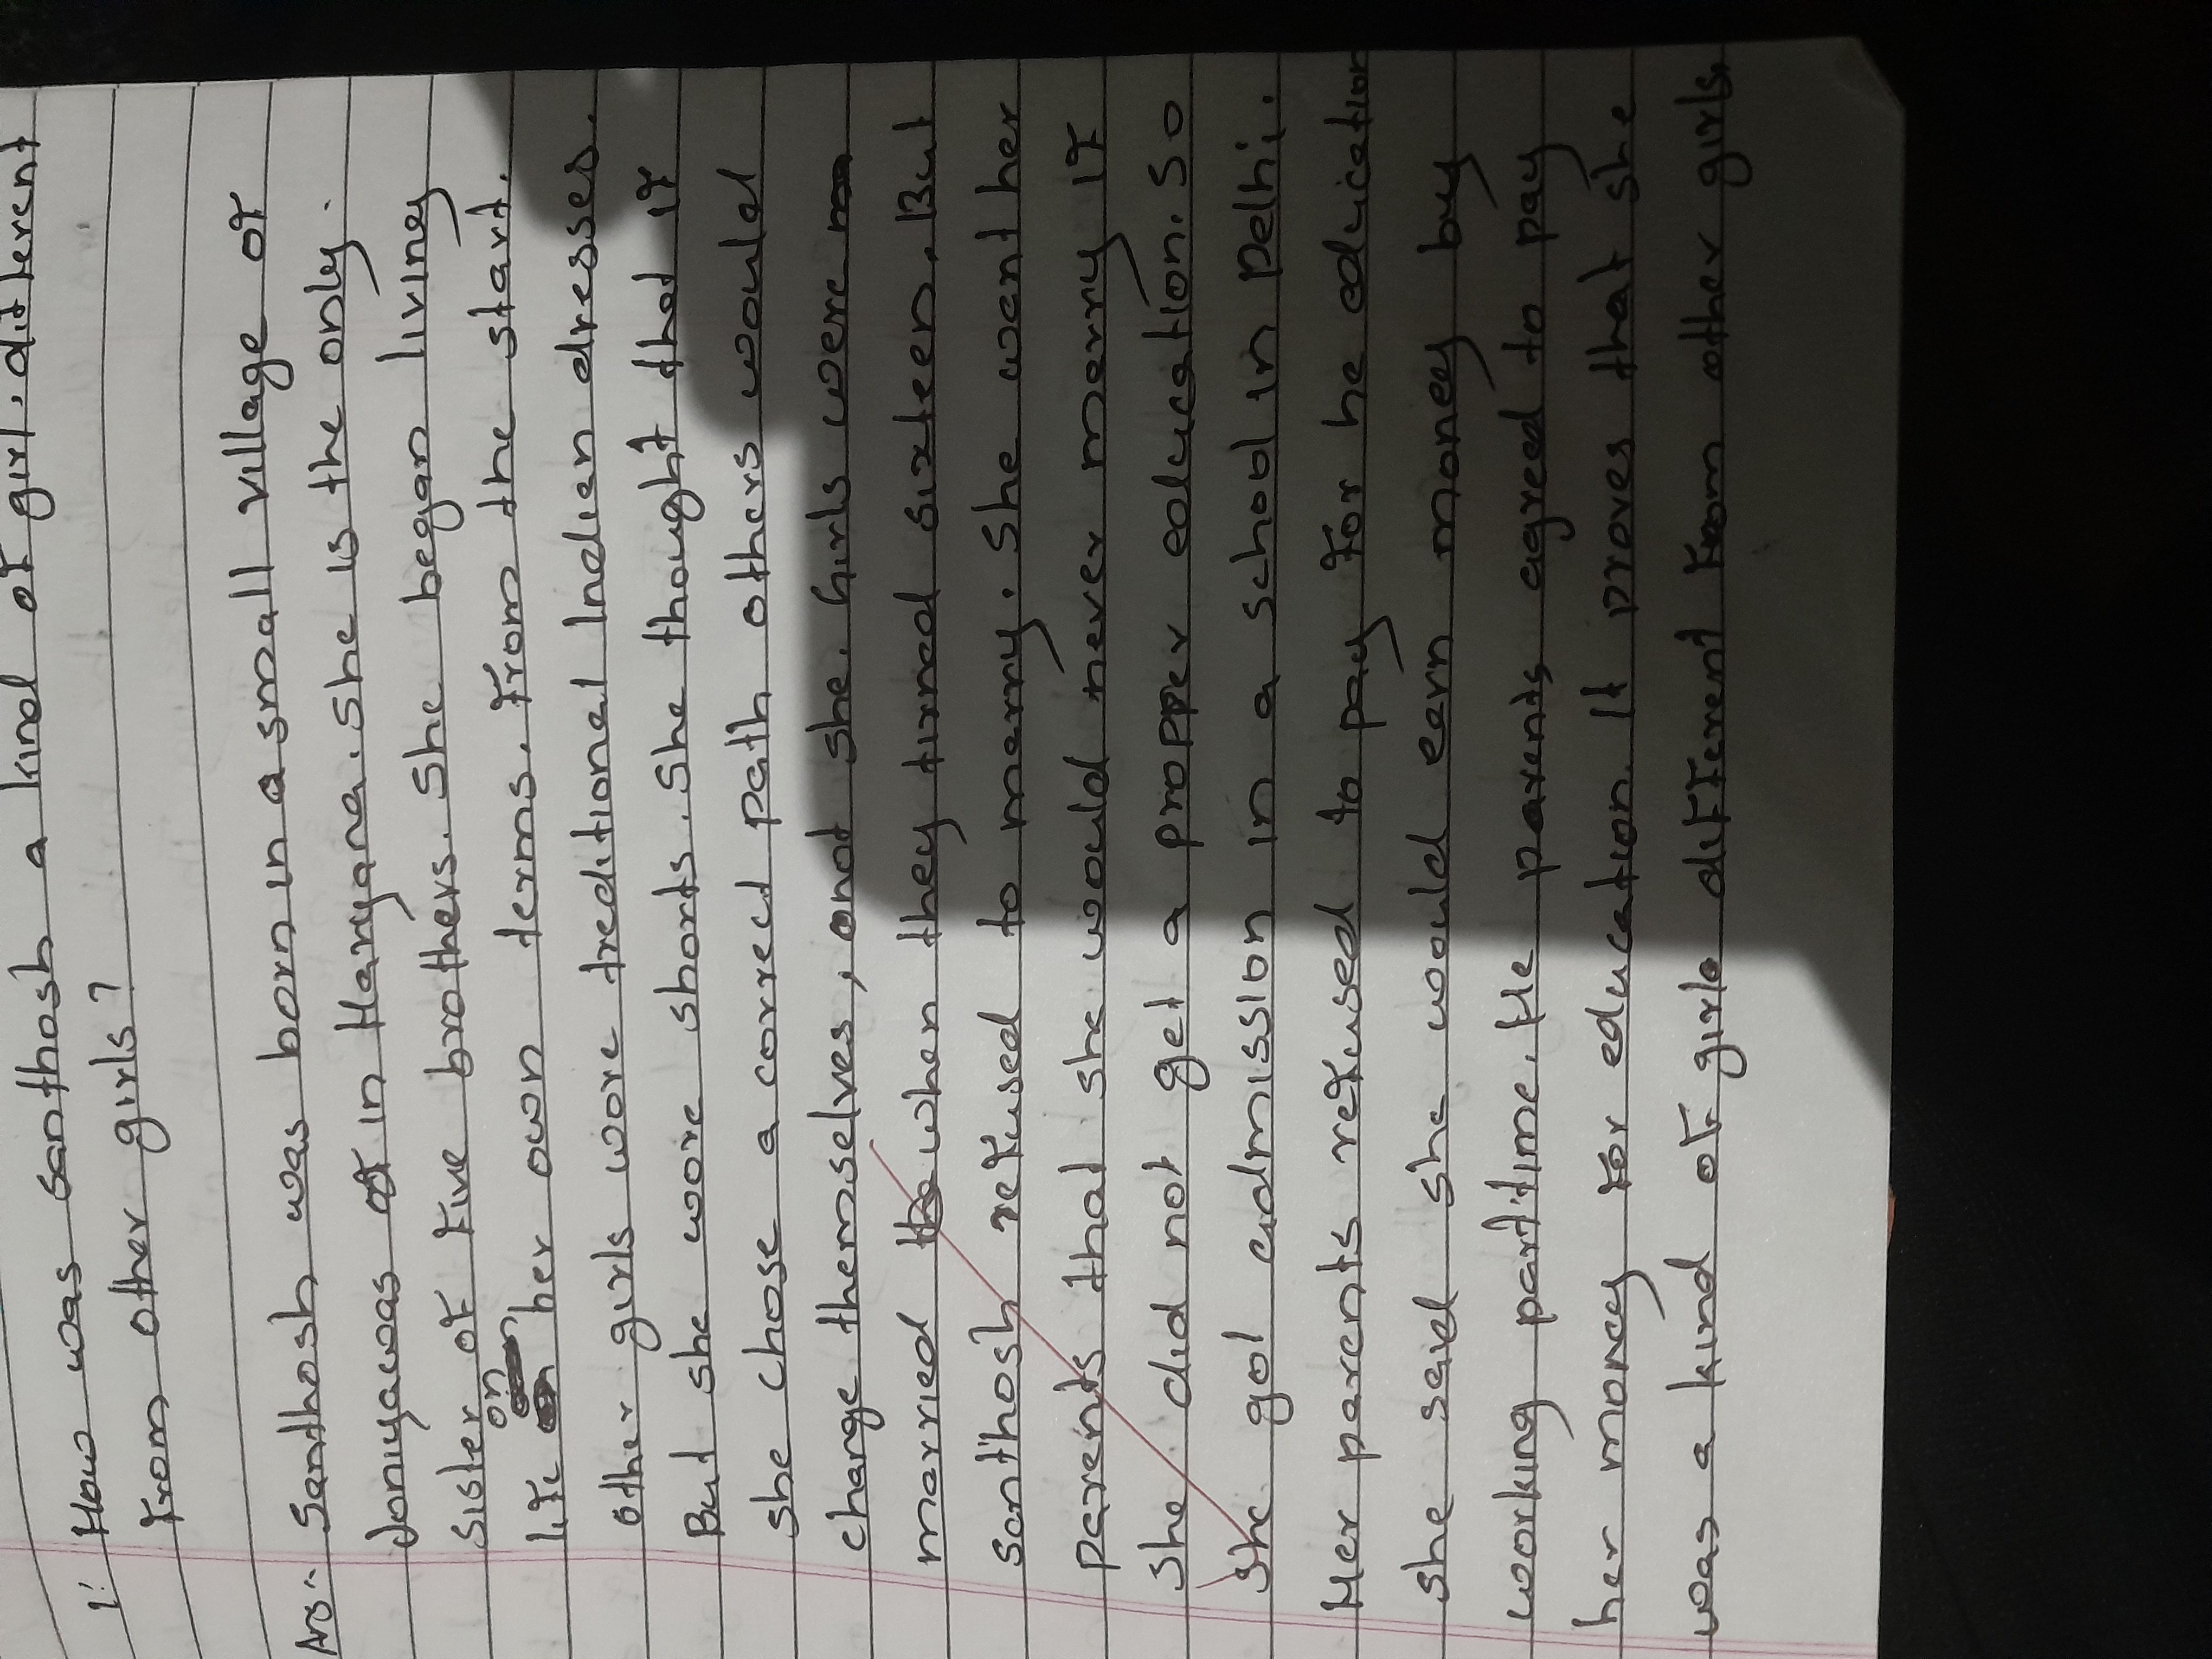 1. How was santhosh a kind of girl, different
from other girls?
Ans:- Santhosh was born in a small village of
Joniyawas in Haryana. She is the only.
sister of five brothers. She began living
life on her own terms. From the start.
other girls wore traditional Indian dresses.
But she wore shorts. She thought that if
she chose a correct path others would
change themselves, onot she. Girls were
married when they turned sixteen. But
santhosh refused to marry. She want her
parents that she would never marry if
she did not get a propper education. So
she got admission in a school in Delhi.
Her parents refused to pay for he education
she said she would earn money by
working part-time. He parents agreed to pay
her money for education. It proves that she
was a kind of girl different from other girls.